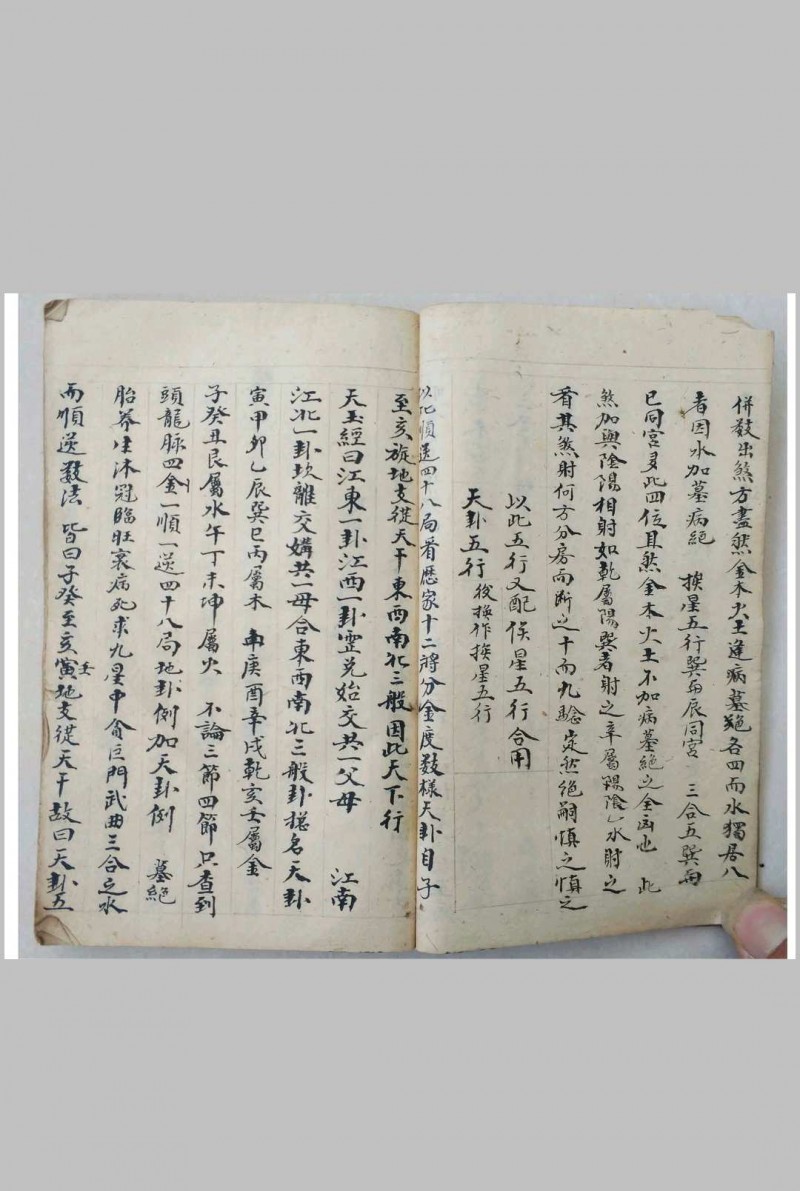 併殺出煞方盡然金木火土逢病墓絕各四而水獨居八
者因水加墓病絕 挨星五行巽与辰同宮 三合五巽与
巳同宮多此四位且煞金木火土不加病墓絕之全凶也 此
煞加與陰陽相射如乾屬陽巽者射之辛屬陽陰乙水射之
看其煞射何方分房而断之十而九驗定然絕嗣慎之慎之
以此五行又配侯星五行合用
天卦五行 後換作挨星五行
以化順逆四十八局看厯家十二將分金度数様天卦自子
至亥旋地支從天干東西南北三般因此天下行
天玉經曰江東一卦江西一卦霊兑始交共一父母 江南
江北一卦坎離交媾共一母合東西南北三般卦搃名天卦
寅甲卯乙辰巽巳丙屬木 申庚酉辛戌乾亥壬屬金
子癸丑艮屬水午丁未坤屬火 不論三節四節只查到
頭龍脉四金一順一逆四十八局地卦例加天卦例 墓絕
胎養生沐冠臨旺衰病死求九星中貪巨門武曲三合之水
而順逆数法 皆曰子癸至亥壬寅地支從天干故曰天卦五